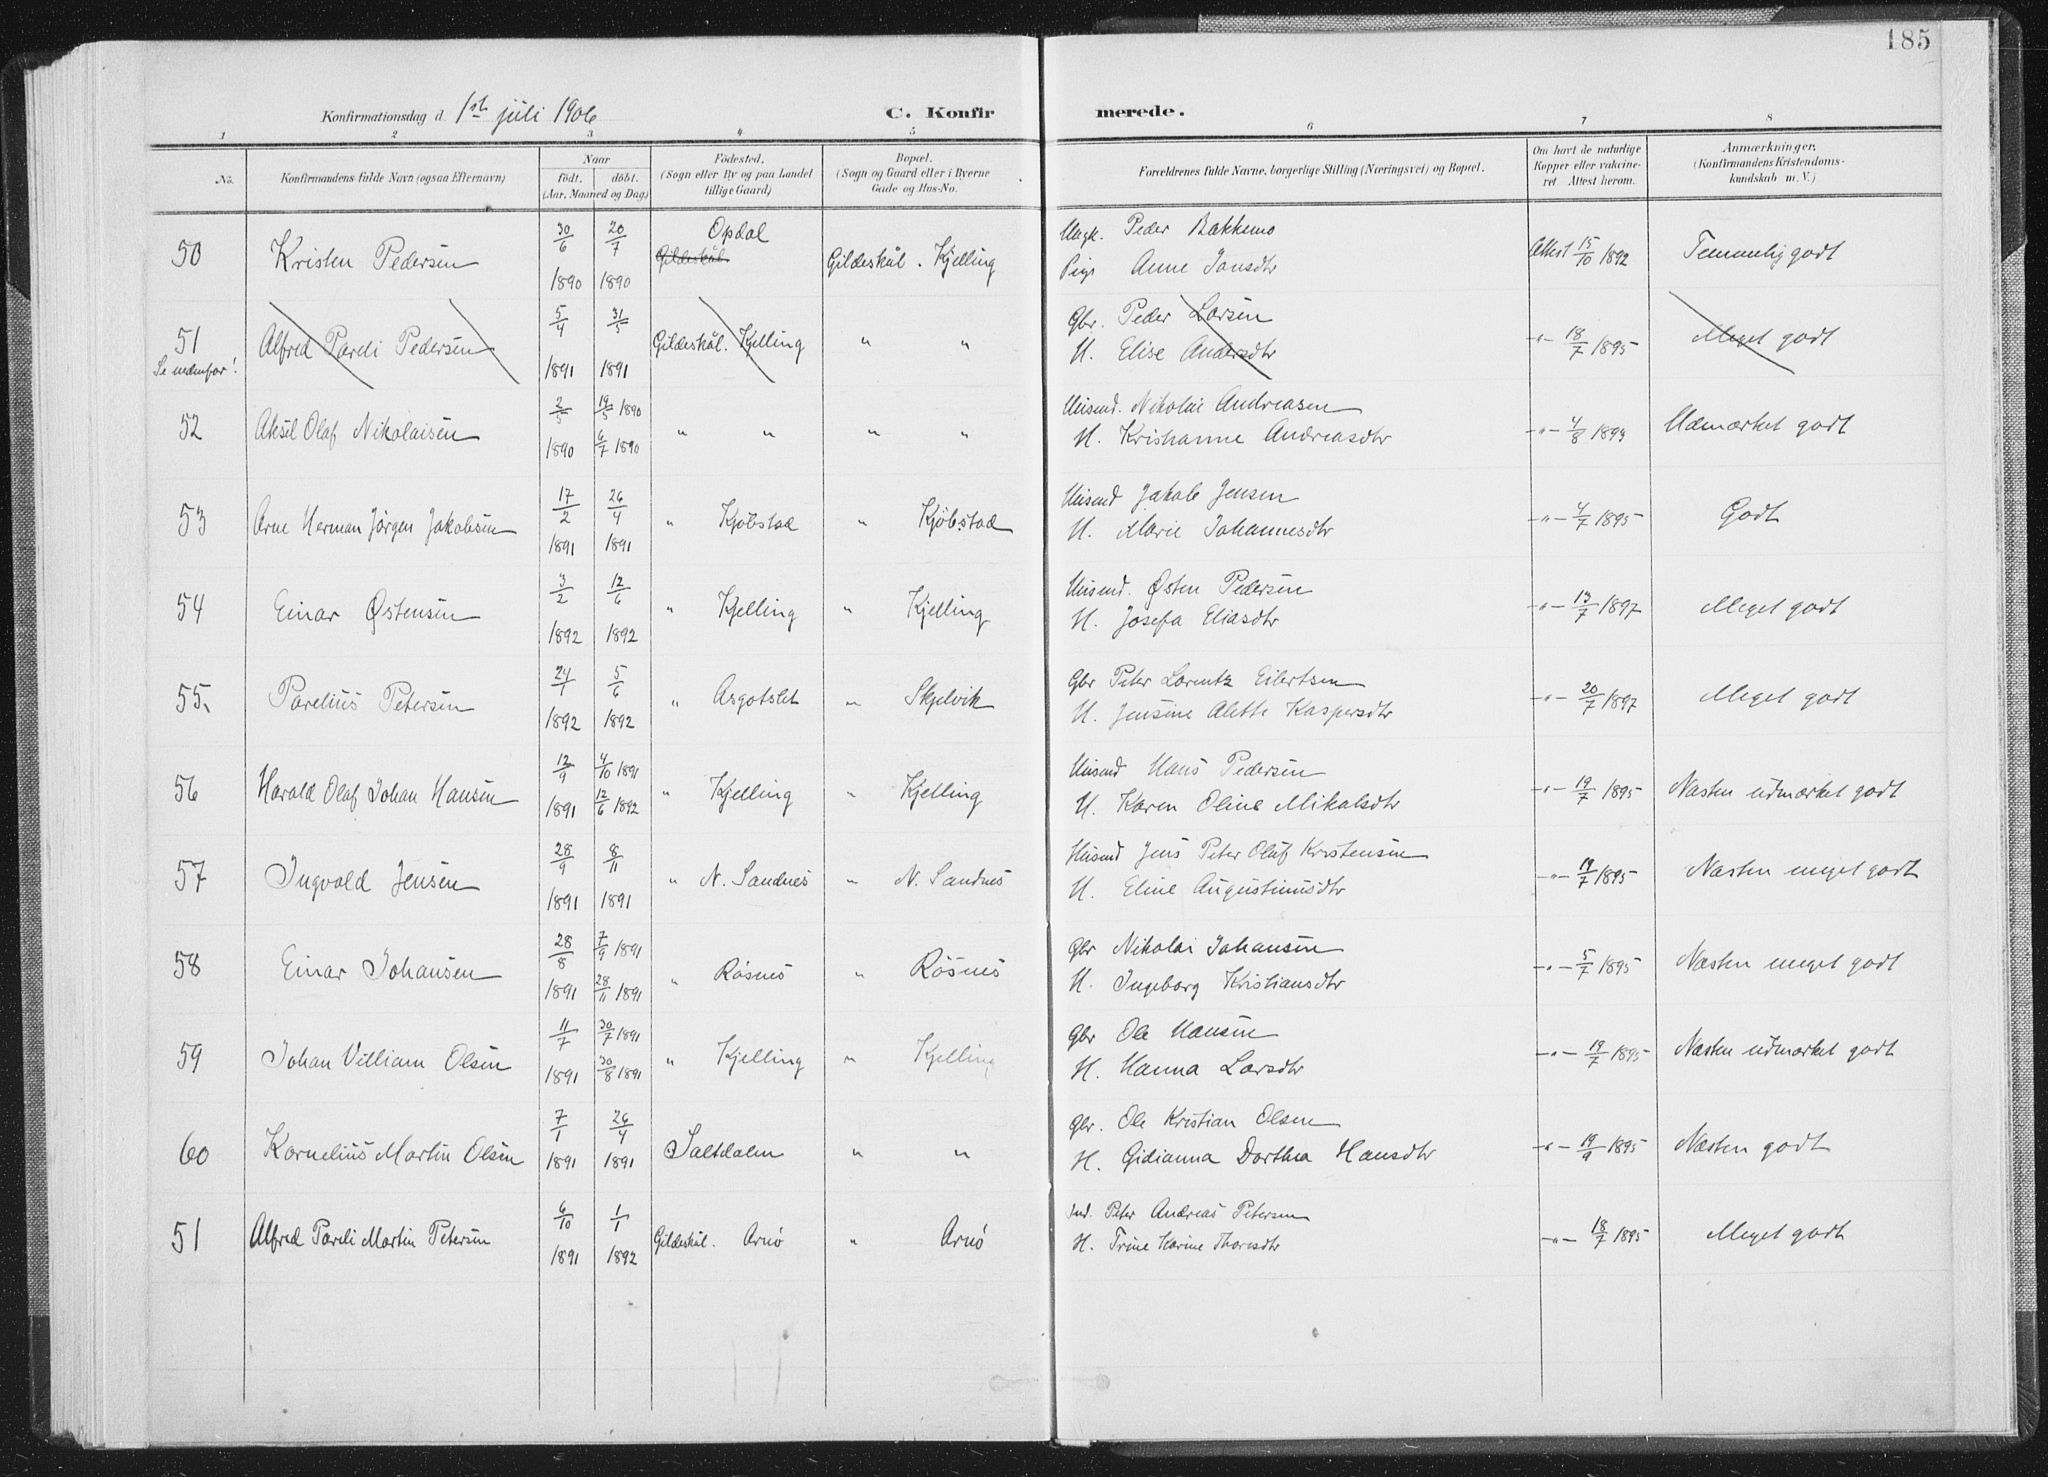 185
Konfirmationsdag d. 1ste juli 1906
C. Konfirmerede.
1 2 3 4 5 6 7 8
No. Konfirmandens fulde Navn (ogsaa Efternavn) Naar født. døbt. (Aar, Maaned og Dag) Fødested. (Sogn eller By og paa Landet tillige Gaard) Bopæl. (Sogn og Gaard eller i Byerne Gade og Hus-No. Forældrenes fulde Navne, borgerlige Stilling (Næringsvei) og Bopæl. Om havt de naturlige Kopper eller vakcineret. Attest herom. Anmærkninger. (Konfirmandens Kristendomskundskab m. V.)
50 Kristen Pedersen 30/6 1890 20/7 1890 Opdal Gildeskål. Gildeskål. Kjelling Ungk. Peder Bakkemo Attest 15/10 1892 Temmelig godt
Pige Anne Jonsdtr
51 Alfred Pareli Pedersen 5/4 1891 31/5 1891 Gildeskål. Kjelling " " Gbr. Peder Larsen -"- 18/7 1895 Meget godt
Se nedenfor! H. Elise Andersdtr
52 Aksel Olaf Nikolaisen 2/5 1890 19/5 1890 6/7 1890 " " " " Husmd. Nikolai Andreasen -"- 4/8 1893 Udmærket godt
H. Kristianne Andreasdtr
53 Arne Herman Jørgen Jakobsen 17/2 1891 26/4 1891 " Kjöbstad " Kjöbstad Husmd Jakob Jensen -"- 4/7 1895 Godt
H. Marie Johannesdtr
54 Einar Østensen 3/2 1892 12/6 1892 " Kjelling " Kjelling Husmd. Østen Pedersen -"- 13/7 1897 Meget godt
H. Josefa Eliasdtr
55. Parelius Petersen 24/1 1892 5/6 1892 " Asgotslet " Skjelvik Gbr Peter Lorentz Eilertsen -"- 20/7 1897 Meget godt
H. Jensine Alette Kaspersdtr
56 Harald Olaf Johan Hansen 12/9 1891 4/10 1891 12/6 1892 " Kjelling " Kjelling Husmd Hans Pedersen -"- 19/7 1895 Næsten udmærket godt
H. Karen Oline Mikalsdtr
57 Ingvald Jensen 28/9 1891 8/11 1891 " N. Sandnes " N. Sandnes Husmd Jens Peter Oluf Kristensen -"- 19/7 1895 Næsten meget godt
H. Eline Augustinusdtr
58 Einar Johansen 28/8 1891 7/9 1891 28/11 1891 " Røsnes " Røsnes Gbr Nikolai Johansen -"- 5/7 1895 Næsten meget godt
H. Ingeborg Kristiansdtr
59 Johan Villiam Olsen 11/7 1891 30/7 1891 30/8 1891 " Kjelling " Kjelling Gbr Ole Hansen -"- 19/7 1895 Næsten udmærket godt
H. Hanna Larsdtr
60 Kornelius Martin Olsen 7/1 1891 26/4 1891 Saltdalen " " Gbr. Ole Kristian Olsen -"- 19/9 1895 Næsten godt
H. Gidianna Dorthea Hansdtr
51 Alfred Pareli Martin Petersen 6/10 1891 1/1 1892 Gildeskål. Arnø " Arnø Ind. Peter Andreas Petersen -"- 18/7 1895 Meget godt
H. Trine Karine Thorisdtr